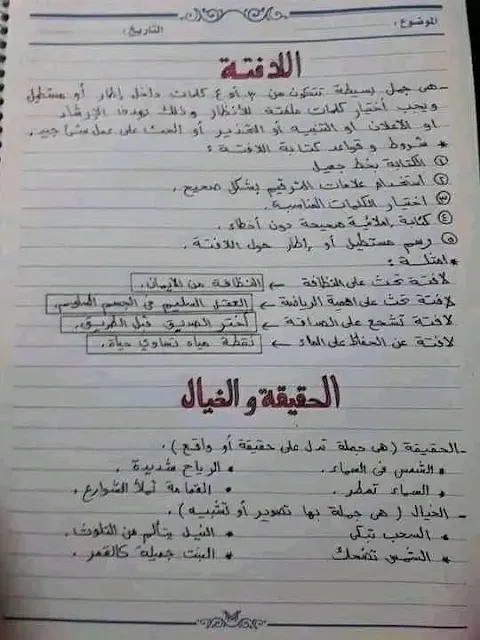 الموضوع:
التاريخ:
اللافتة
- هى جمل بسيطة تتكون من ٣ أو ٤ كلمات داخل إطار أو مستطيل
ويجب أختيار كلمات ملفتة للأنظار وذلك بهدف الإرشاد
او الاعلان او التنبيه أو التحذير أو الحث على عمل شئ جيد.
* شروط و قواعد كتابة اللافتة:
① الكتابة بخط جميل
② استخدام علامات الترقيم بشكل صحيح.
③ اختيار الكلمات المناسبة.
④ كتابة إملائية صحيحة دون أخطاء.
⑤ رسم مستطيل أو إطار حول اللافتة.
* امثلة:
لافتة تحث على النظافة ← النظافة من الإيمان.
لافتة تحث على اهمية الرياضة ← العقل السليم فى الجسم السليم.
لافتة تشجع على الصداقة ← أختر الصديق قبل الطريق.
لافتة عن الحفاظ على الماء ← نقطة مياه تساوي حياة.
الحقيقة و الخيال
- الحقيقة (هى جملة تدل على حقيقة أو واقع).
* الشمس فى السماء. * الرياح شديدة.
* السماء تمطر. * القمامة تملأ الشوارع.
- الخيال (هى جملة بها تصوير أو تشبيه).
* السحب تبكى * النيل يتألم من التلوث.
* الشمس تضحك * البنت جميلة كالقمر.